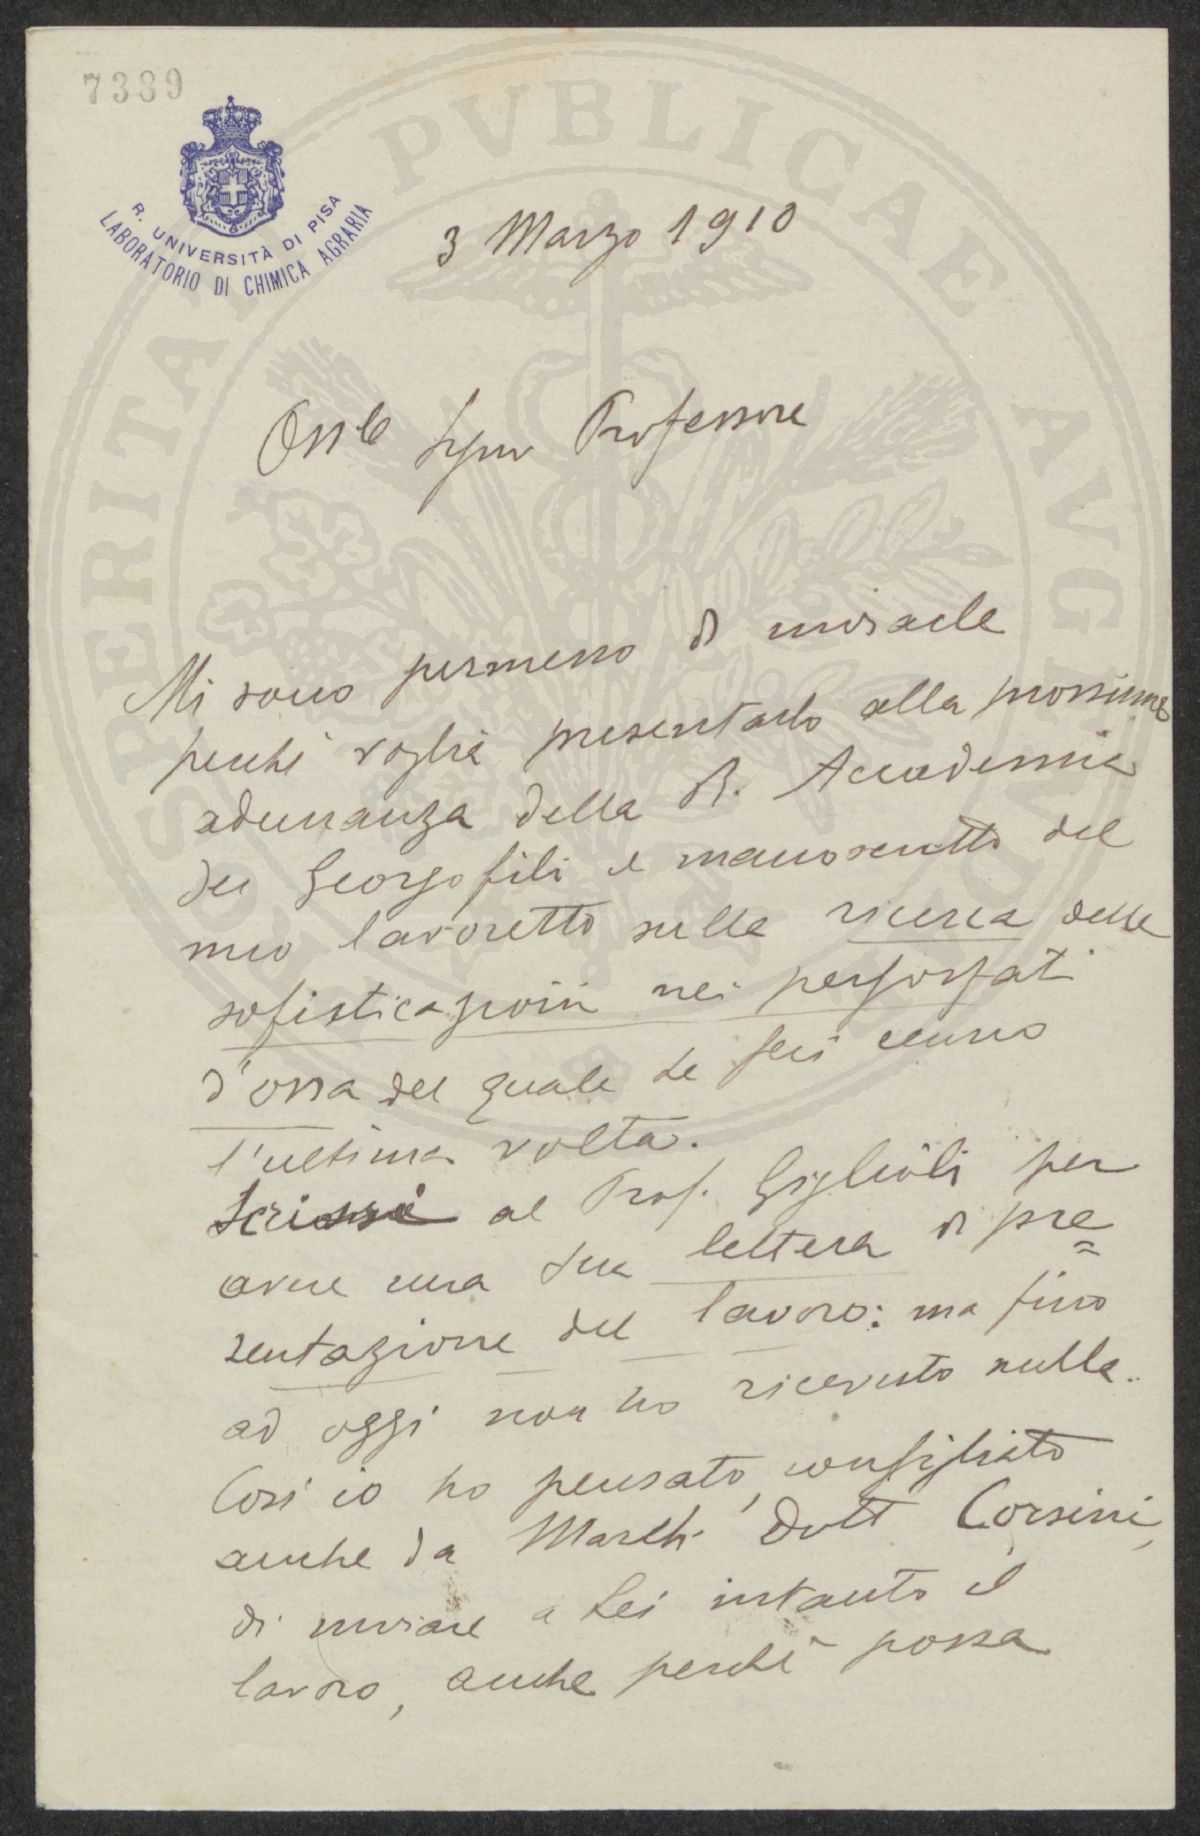 7389
R. UNIVERSITÀ DI PISA
LABORATORIO DI CHIMICA AGRARIA
PROSPERITATI PVBLICAE AVGENDAE
3 Marzo 1910
Professore
Mi sono permesso di inviarle
perchè voglia presentarlo alla prossima
adunanza della R. Accademia
dei Georgofili il manoscritto del
mio lavoretto sulla ricerca delle
sofisticazioni nei perfosfati
d'ossa del quale Le feci cenno
l'ultima volta.
Scrissi al Prof. Giglioli per
avere una sua lettera di pre=
sentazione del lavoro: ma fino
ad oggi non ho ricevuto nulla.
Così io ho pensato, consigliato
anche da March. Dott Corsini,
di inviare a Lei intanto il
lavoro, anche perchè possa